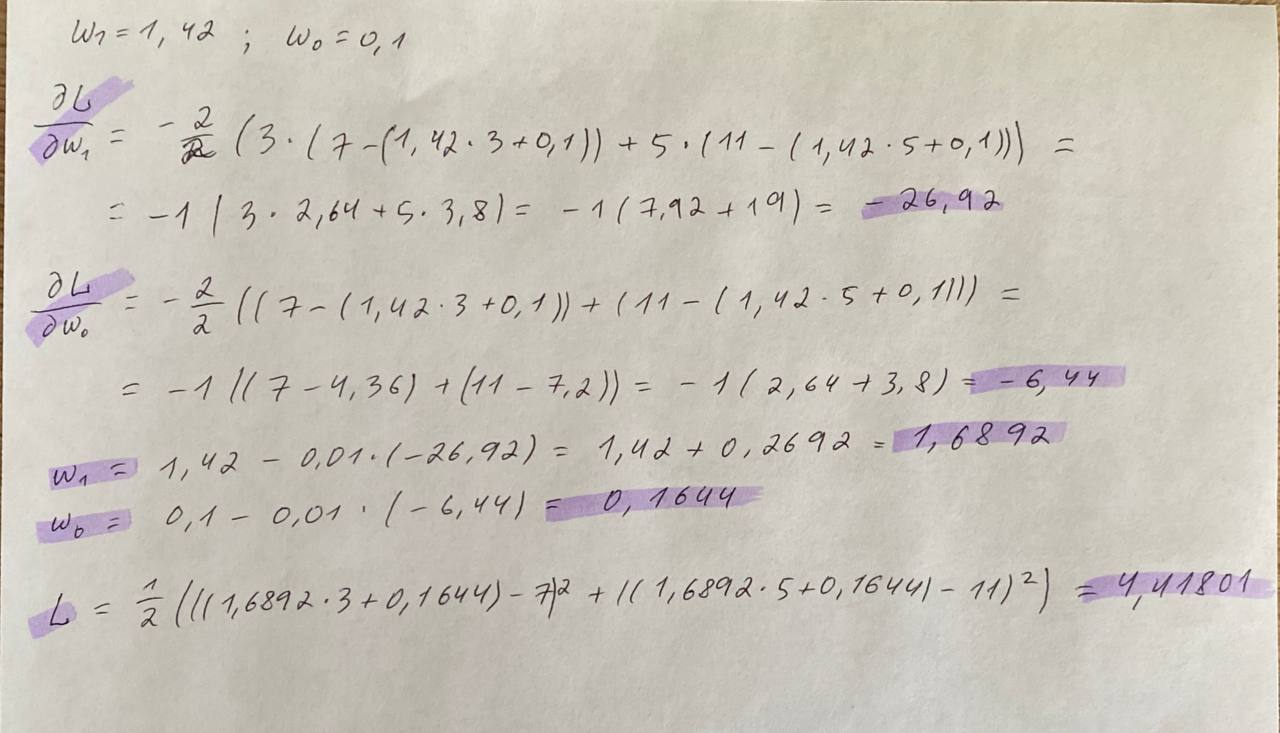 w₁ = 1,42 ; w₀ = 0,1
∂L/∂w₁ = -2/2 (3·(7-(1,42·3+0,1)) + 5·(11-(1,42·5+0,1))) =
= -1(3·2,64+5·3,8) = -1(7,92+19) = -26,92
∂L/∂w₀ = -2/2 ((7-(1,42·3+0,1)) + (11-(1,42·5+0,1))) =
= -1((7-4,36)+(11-7,2)) = -1(2,64+3,8) = -6,44
w₁ = 1,42 - 0,01·(-26,92) = 1,42 + 0,2692 = 1,6892
w₀ = 0,1 - 0,01·(-6,44) = 0,1644
L = 1/2 (((1,6892·3+0,1644)-7)² + ((1,6892·5+0,1644)-11)²) = 4,41801